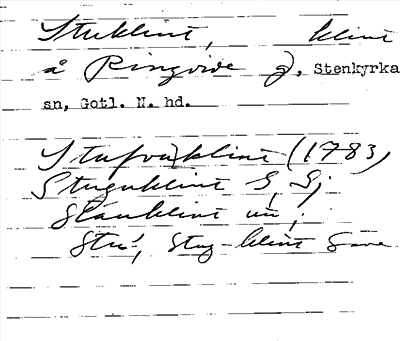 Stuklint, klint
å Ringvide g, Stenkyrka
sn, Gotl. N. hd.
Stufvuklint (1783,
Stuguklint S, Sj
klint un ;
Stu-, Stug-klint Save